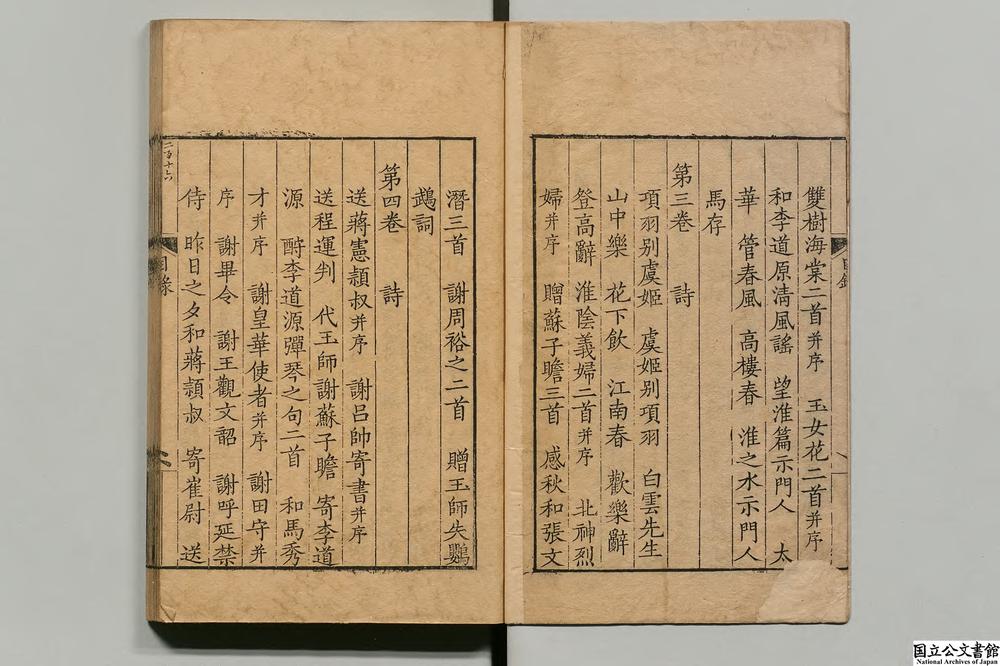 雙樹海棠二首并序 玉女花二首并序
和李道原清風謠 望淮篇示門人 太
華 管春風 高樓春 淮之水示門人
馬存
第三卷 詩
項羽別虞姬 虞姬別項羽 白雲先生
山中樂 花下飲 江南春 歡樂辭
登高辭 淮陰義婦二首并序 北神烈
婦并序 贈蘇子瞻三首 感秋和張文
目錄
潛三首 謝周裕之二首 贈王師失鸚
鵡詞
第四卷 詩
送蔣憲頴叔并序 謝呂帥寄書并序
送程運判 代王師謝蘇子瞻 寄李道
源 酧李道源彈琴之句二首 和馬秀
才并序 謝皇華使者并序 謝田守并
序 謝畢令 謝王觀文韶 謝呼延禁
侍 昨日之夕和蔣頴叔 寄崔尉 送
目錄
二百十六
国立公文書館
National Archives of Japan